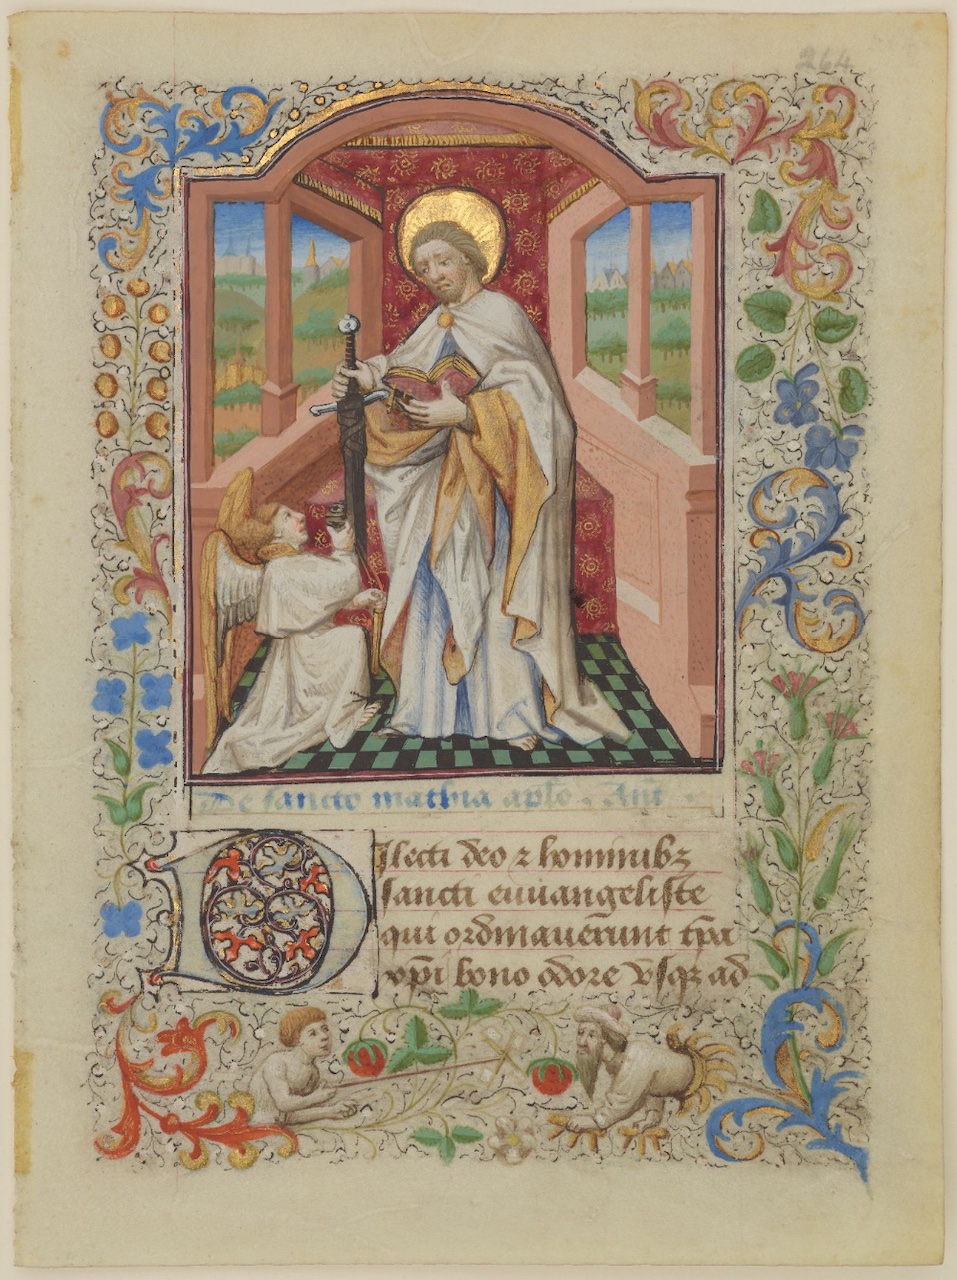 264
De sancto mathia aplo. Añt
Dilecti deo ⁊ hominibꝫ
sancti euuangeliste
qui ordinauerunt tp̃a
xp̃i bono odore vsqꝫ ad